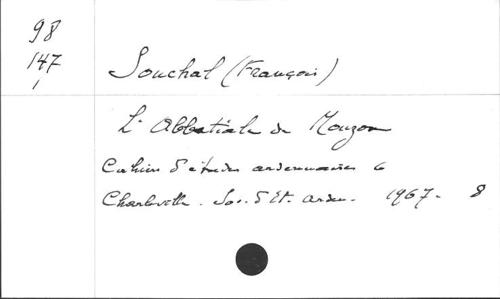 98
147
1
Souchal (François)
L'Abbatiale de Mouzon
Cahiers d'études ardennaises 6
Charleville. Soc. d'Et. arden. 1967. 8